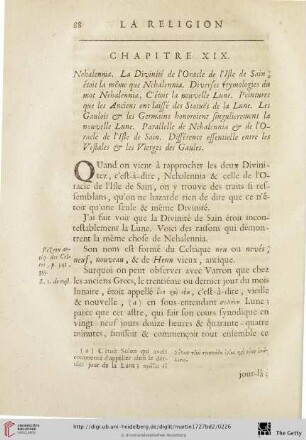 88 LA RELIGION
CHAPITRE XIX.
Nehalennia. La Divinité de l'Oracle de l'Isle de Sain;
étoit la même que Nehalennia. Diverses etymologies du
mot Nehalennia. C'étoit la nouvelle Lune. Peintures
que les Anciens ont laissé des Statuës de la Lune. Les
Gaulois & les Germains honoroient singulierement la
nouvelle Lune. Parallelle de Nehalennia & de l'O-
racle de l'Isle de Sain. Différence essentielle entre les
Vestales & les Vierges des Gaules.
QUand on vient à rapprocher les deux Divini-
tez, c'est-à-dire, Nehalennia & celle de l'O-
racle de l'Isle de Sain, on y trouve des traits si ref-
semblans, qu'on ne hazarde rien de dire que ce n'é-
toit qu'une seule & même Divinité.
J'ai fait voir que la Divinité de Sain étoit incon-
testablement la Lune. Voici des raisons qui démon-
trent la même chose de Nehalennia.
Son nom est formé du Celtique neu ou nevés;
neuf, nouveau, & de Henn vieux, antique.
Surquoi on peut observer avec Varron que chez
les anciens Grecs, le trentiéme ou dernier jour du mois
lunaire, étoit appellé ἕνη καὶ νέα, c'est-à-dire, vieille
& nouvelle, (a) en sous-entendant σελήνη Lune;
parce que cet astre, qui fait son cours synodique en
vingt-neuf jours douze heures & quarante-quatre
minutes, finissoit & commençoit tout ensemble ce
(a) C'étoit Solon qui avoit
commencé d'appeller ainsi le der-
nier jour de la Lune;
jour-là:
http://digi.ub.uni-heidelberg.de/diglit/martin1727bd2/0226
© Universitätsbibliothek Heidelberg